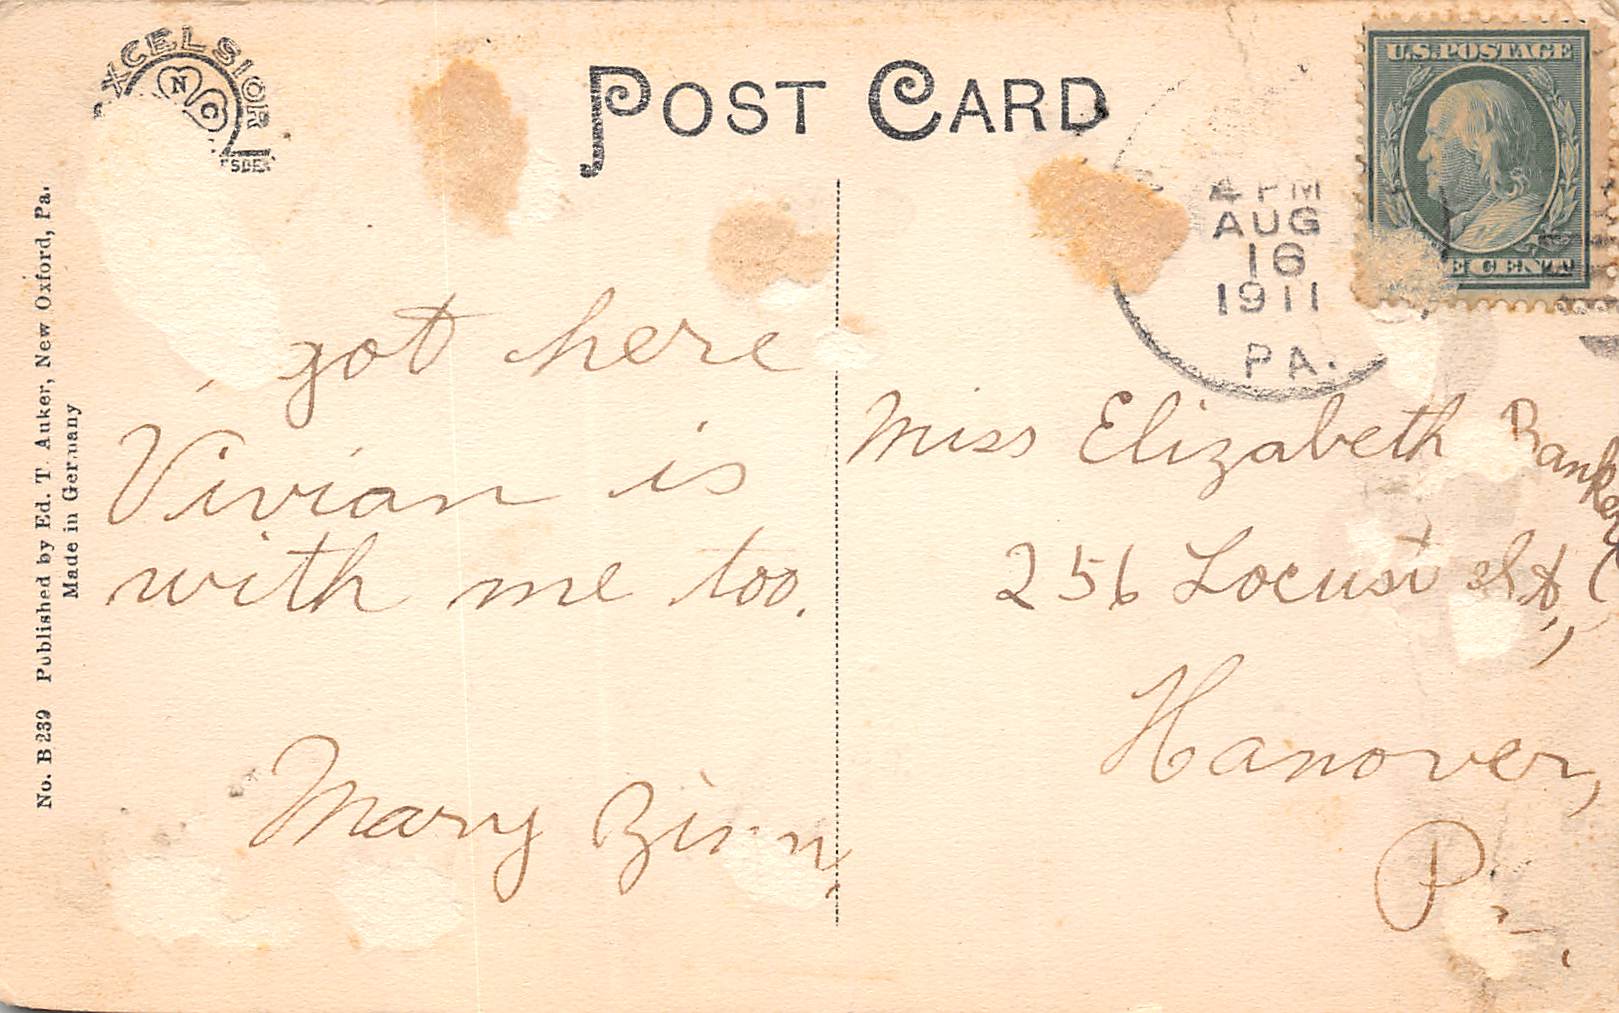 EXCELSIOR
N C
POST CARD
U.S. POSTAGE
4 PM
AUG
16
1911
PA.
E CENT
No. B 239 Published by Ed. T. Auker, New Oxford, Pa.
Made in Germany
got here
Vivian is
with me too.
Mary Zinn
Miss Elizabeth
256 Locust St.,
Hanover,
Pa.